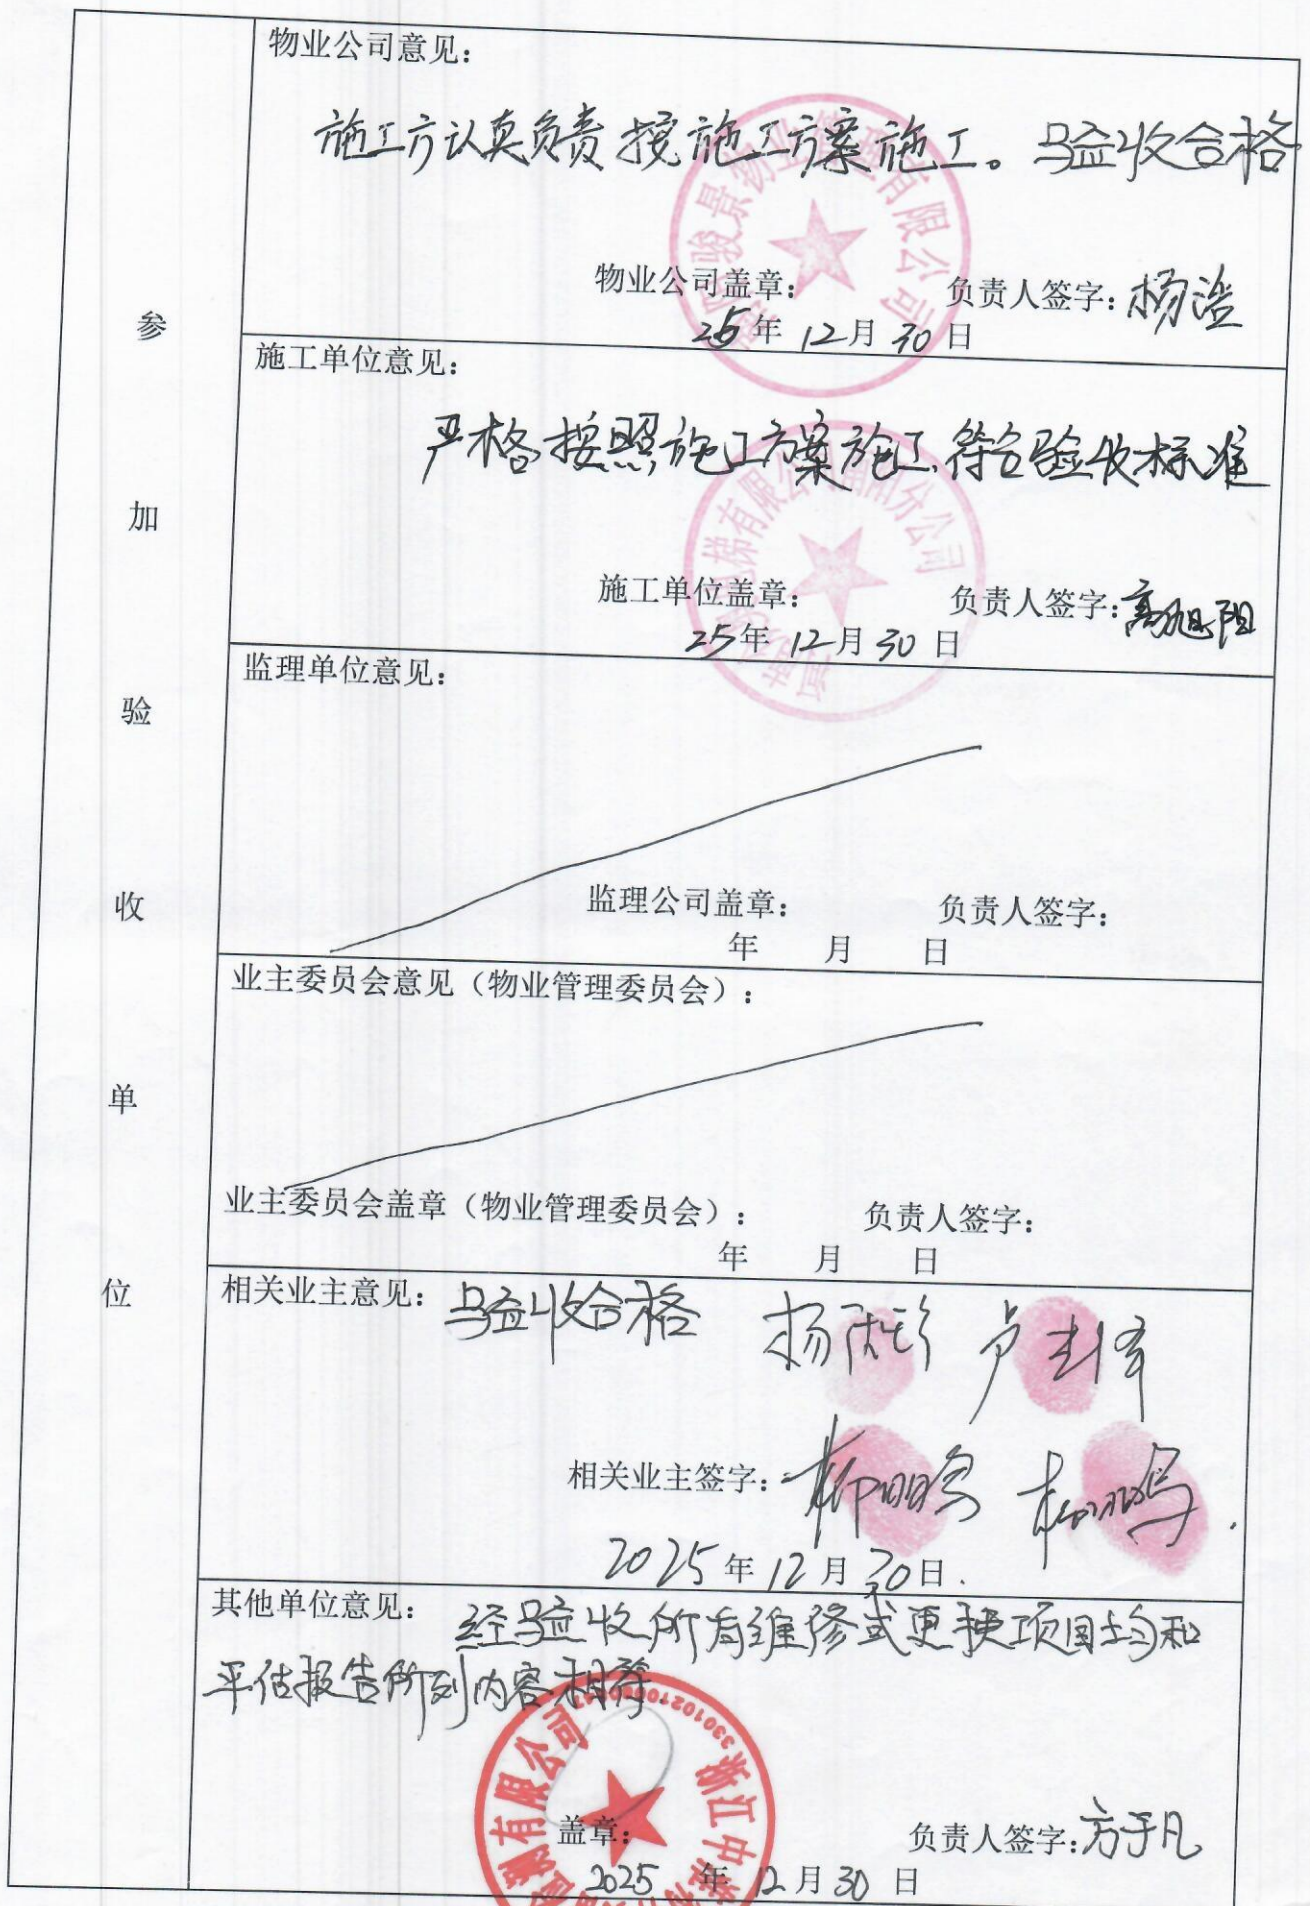 物业公司意见：
施工方认真负责按施工方案施工。验收合格
骏景物业管理有限公司
物业公司盖章： 负责人签字：杨浩
25年12月30日
施工单位意见：
严格按照施工方案施工、符合验收标准
电梯有限公司 分公司
施工单位盖章： 负责人签字：高旭阳
25年12月30日
监理单位意见：
监理公司盖章： 负责人签字：
年 月 日
业主委员会意见（物业管理委员会）：
业主委员会盖章（物业管理委员会）： 负责人签字：
年 月 日
相关业主意见： 验收合格
相关业主签字：
2025年12月30日.
其他单位意见： 经验收所有维修或更换项目均和
平估报告所列内容相符
浙江中 检测有限公司
盖章： 负责人签字：方于凡
2025年12月30日
参
加
验
收
单
位